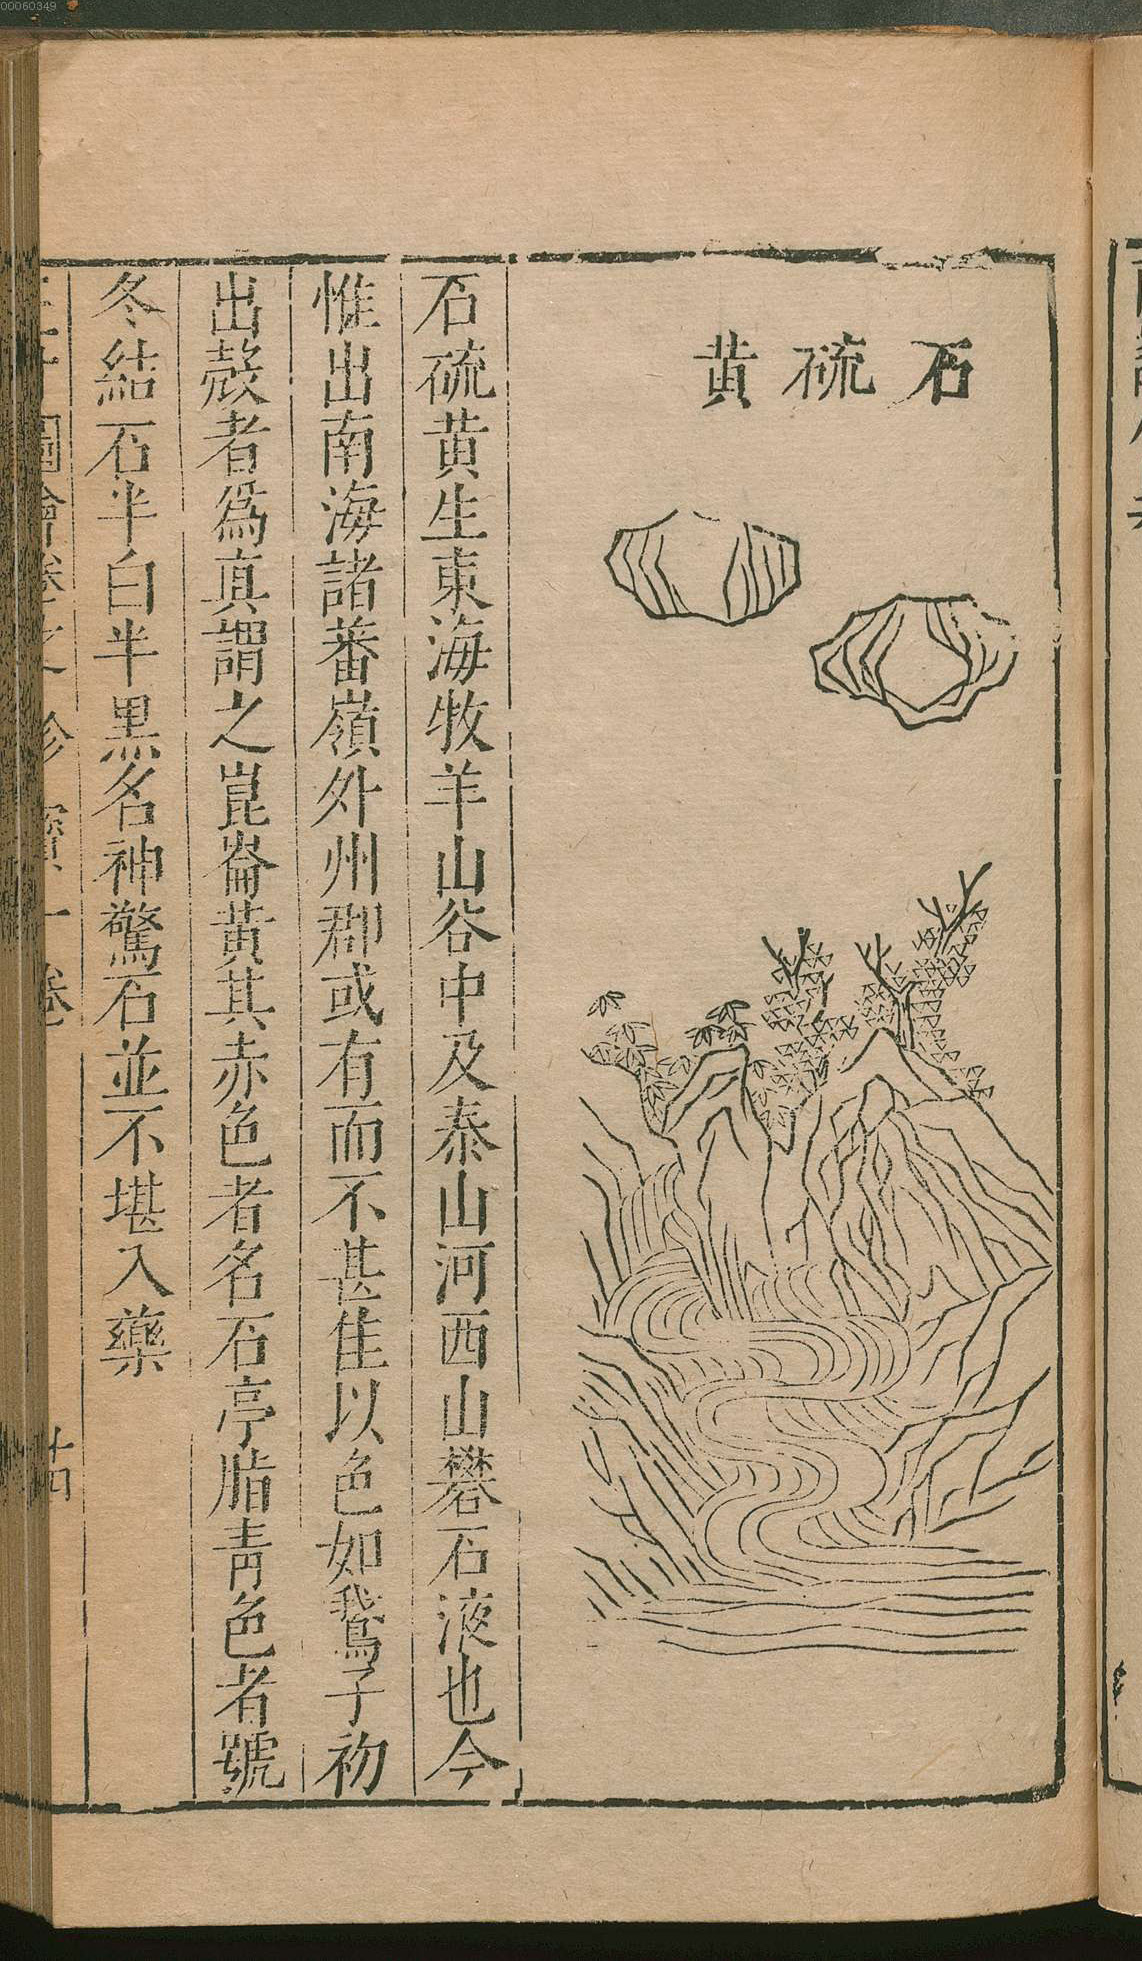 00060349
石硫黄
石硫黄生東海牧羊山谷中及泰山河西山礬石液也今
惟出南海諸蕃嶺外州郡或有而不甚佳以色如鵞子初
出殼者爲真謂之崑崙黄其赤色者名石亭脂青色者號
冬結石半白半黒名神驚石並不堪入藥
圖會卷之 珍寶一卷 廿四